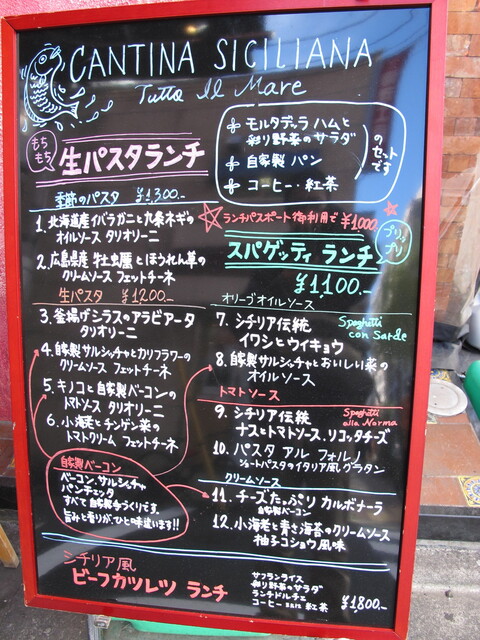 CANTINA SICILIANA
Tutto Il Mare
もちもち
生パスタランチ
モルタデッラ ハムと
彩り野菜のサラダ
自家製 パン
コーヒー・紅茶
のセットです
季節のパスタ ¥1,300.-
1. 北海道産イバラガニと九条ネギの
オイルソース タリオリーニ
2. 広島県産 牡蛎とほうれん草の
クリームソース フェットチーネ
生パスタ ¥1200.-
3. 釜揚げシラスのアラビアータ
タリオリーニ
4. 自家製サルシッチャとカリフラワーの
クリームソース フェットチーネ
5. キノコと自家製ベーコンの
トマトソース タリオリーニ
6. 小海老とチンゲン菜の
トマトクリーム フェットチーネ
自家製ベーコン
ベーコン、サルシッチャ
パンチェッタ
すべて自家製手づくりです。
旨みと香りが、ひと味違います!!
ランチパスポート御利用で ¥1,000
スパゲッティ ランチ
プリップリ
¥1,100.-
オリーブオイルソース
7. シチリア伝統
イワシとウイキョウ
Spaghetti
con Sarde
8. 自家製サルシッチャとおいしい菜の
オイルソース
トマトソース
9. シチリア伝統
ナスとトマトソース、リコッタチーズ
Spaghetti
alla Norma
10. パスタ アル フォルノ
ショートパスタのイタリア風グラタン
クリームソース
11. チーズたっぷり カルボナーラ
自家製ベーコン
12. 小海老と青さ海苔のクリームソース
柚子コショウ風味
シチリア風
ビーフカツレツ ランチ
サフランライス
彩り野菜のサラダ
ランチドルチェ
コーヒー 紅茶
¥1,800.-